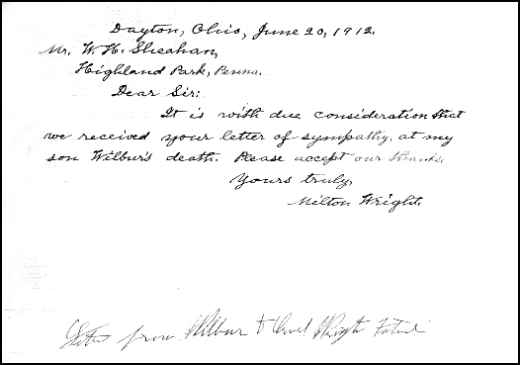 Dayton, Ohio, June 20, 1912.
Mr. W. H. Sheahan,
Highland Park, Penna.
Dear Sir:
It is with due consideration that
we received your letter of sympathy, at my
son Wilbur's death. Please accept our thanks.
Yours truly,
Milton Wright.
Letter from Wilbur & Orvil Wright Father